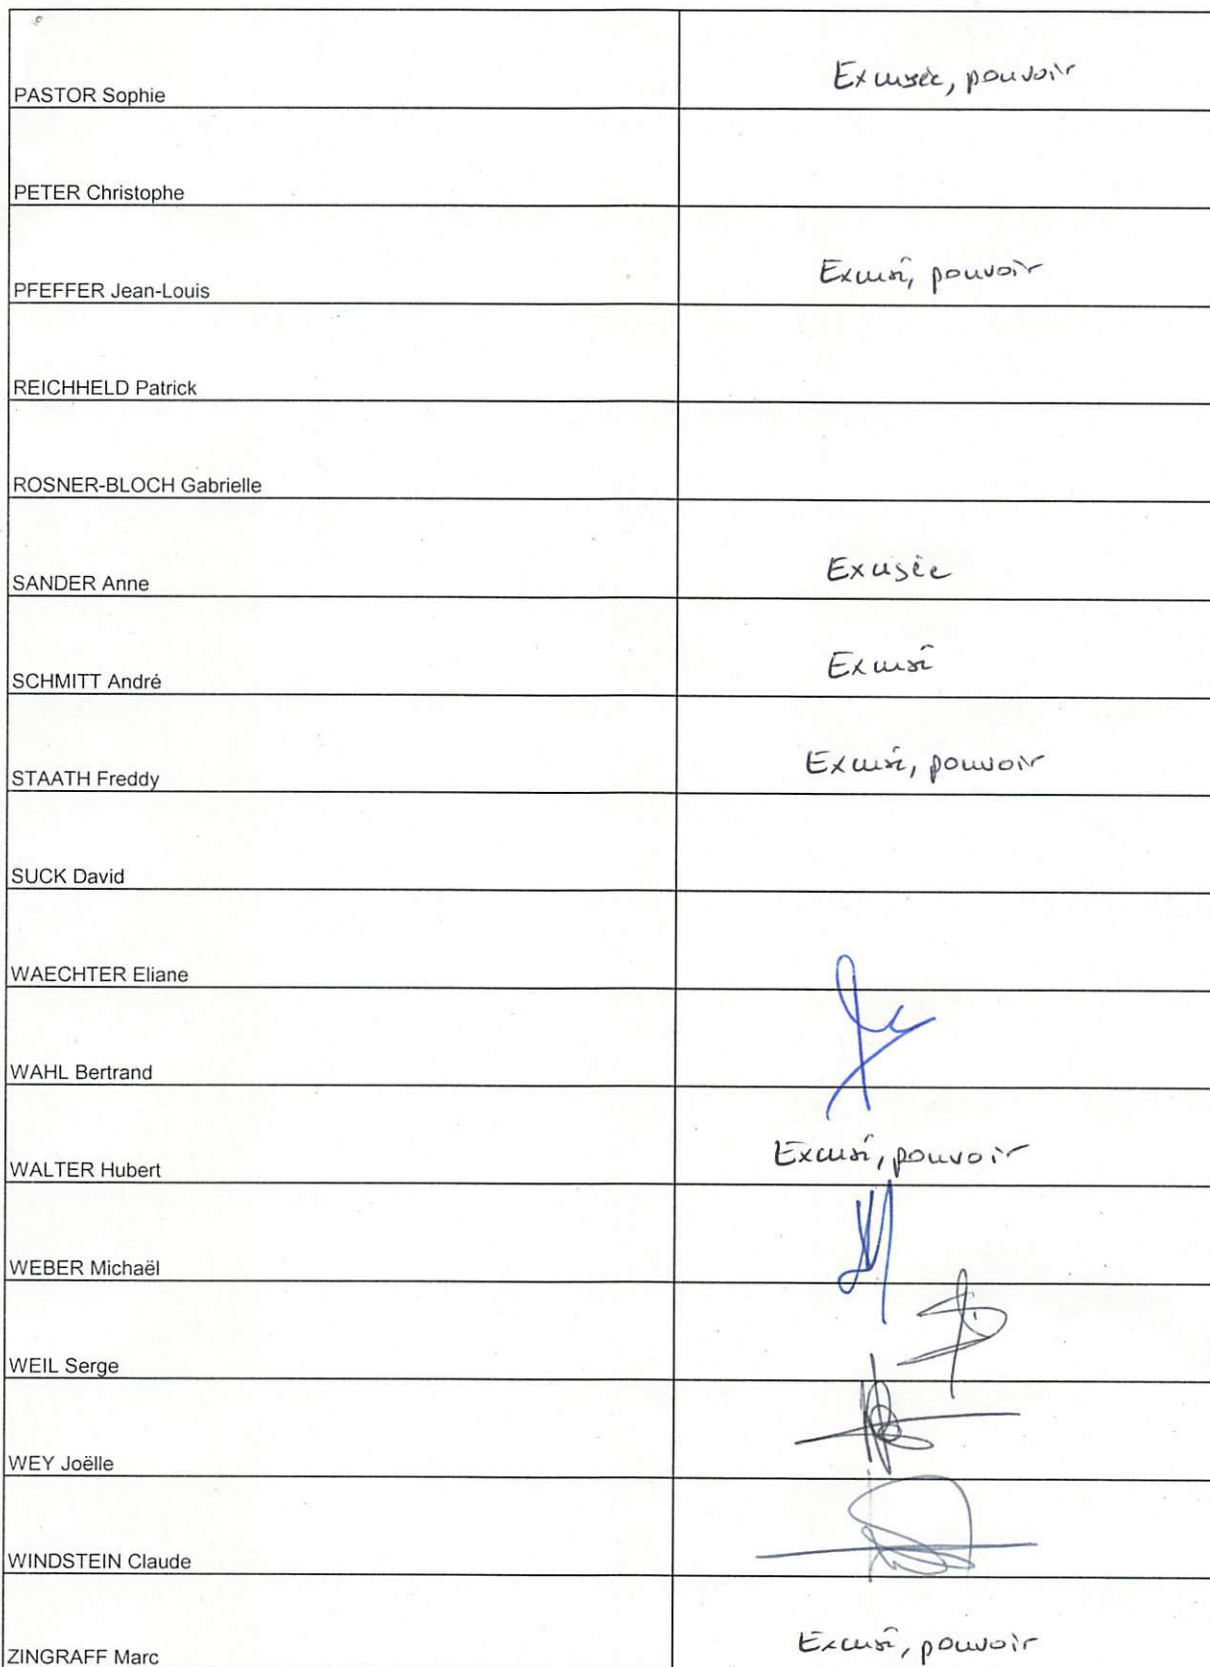 PASTOR Sophie
Excusée, pouvoir
PETER Christophe
PFEFFER Jean-Louis
Excusé, pouvoir
REICHHELD Patrick
ROSNER-BLOCH Gabrielle
SANDER Anne
Excusée
SCHMITT André
Excusé
STAATH Freddy
Excusé, pouvoir
SUCK David
WAECHTER Eliane
WAHL Bertrand
WALTER Hubert
Excusé, pouvoir
WEBER Michaël
WEIL Serge
WEY Joëlle
WINDSTEIN Claude
ZINGRAFF Marc
Excusé, pouvoir